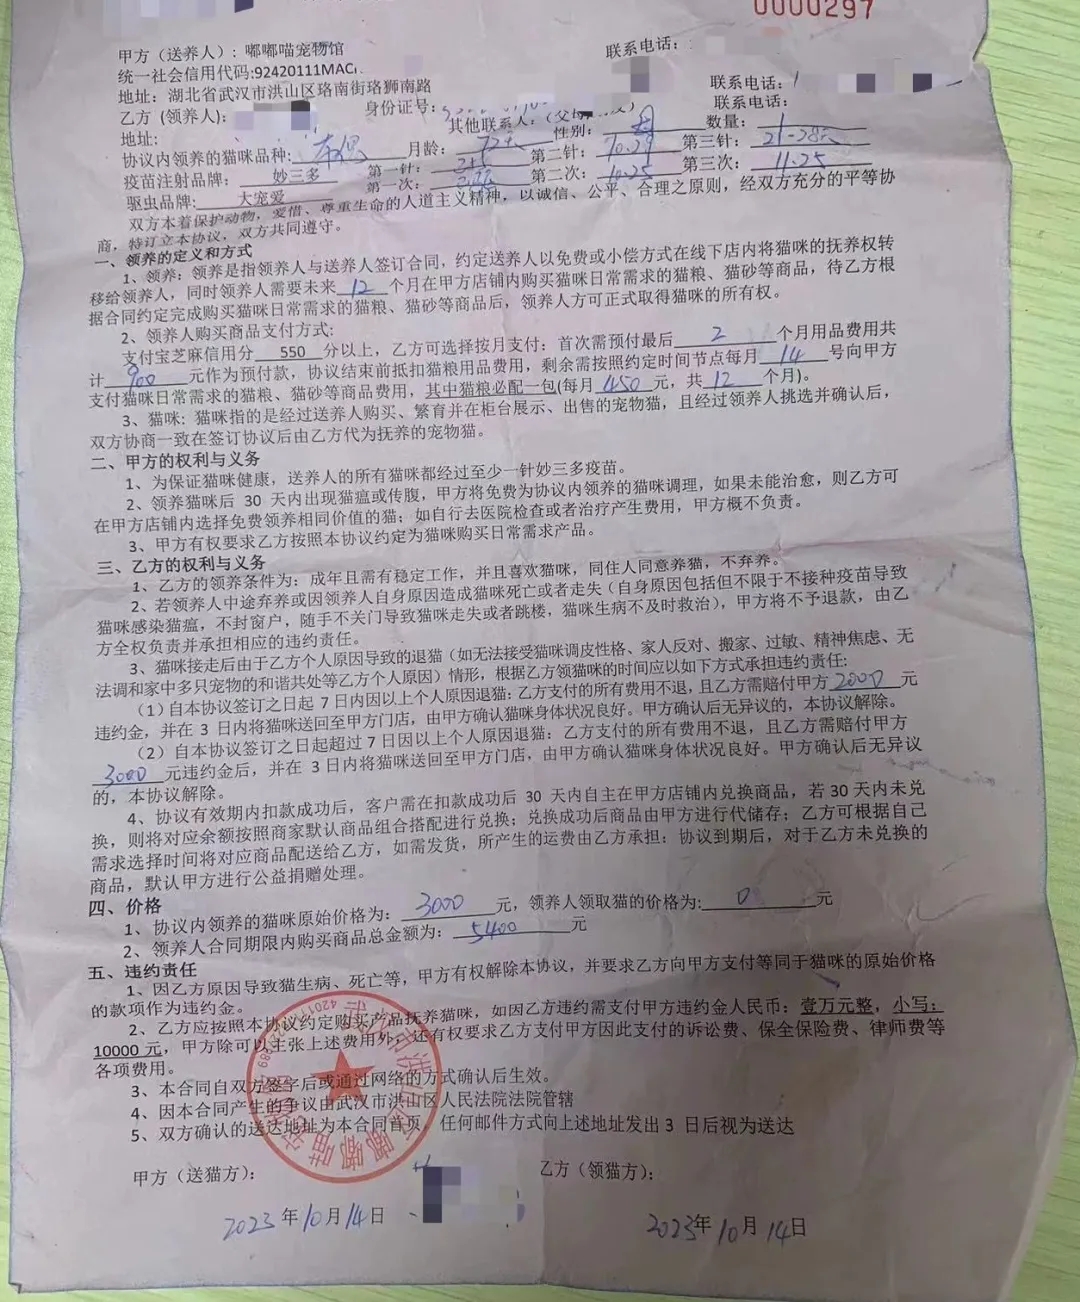 0000297
甲方（送养人）: 嘟嘟喵宠物馆
联系电话：
统一社会信用代码:92420111MAC
地址：湖北省武汉市洪山区珞南街珞狮南路
联系电话：
乙方（领养人）：
身份证号：
联系电话：
地址：
其他联系人：
协议内领养的猫咪品种: 月龄: 72天 性别: 数量:
疫苗注射品牌: 妙三多 第一针: 第二针: 10.29 第三针: 21-28天
驱虫品牌: 大宠爱 第一次: 第二次: 10.25 第三次: 11.25
双方本着保护动物，爱惜、尊重生命的人道主义精神，以诚信、公平、合理之原则，经双方充分的平等协
商，特订立本协议，双方共同遵守。
一、领养的定义和方式
1、领养：领养是指领养人与送养人签订合同，约定送养人以免费或小偿方式在线下店内将猫咪的抚养权转
移给领养人，同时领养人需要未来 12 个月在甲方店铺内购买猫咪日常需求的猫粮、猫砂等商品，待乙方根
据合同约定完成购买猫咪日常需求的猫粮、猫砂等商品后，领养人方可正式取得猫咪的所有权。
2、领养人购买商品支付方式:
支付宝芝麻信用分 550 分以上，乙方可选择按月支付：首次需预付最后 2 个月用品费用共
计 900 元作为预付款，协议结束前抵扣猫粮用品费用，剩余需按照约定时间节点每月 14 号向甲方
支付猫咪日常需求的猫粮、猫砂等商品费用，其中猫粮必配一包(每月 450 元，共 12 个月)。
3、猫咪: 猫咪指的是经过送养人购买、繁育并在柜台展示、出售的宠物猫，且经过领养人挑选并确认后，
双方协商一致在签订协议后由乙方代为抚养的宠物猫。
二、甲方的权利与义务
1、为保证猫咪健康，送养人的所有猫咪都经过至少一针妙三多疫苗。
2、领养猫咪后 30 天内出现猫瘟或传腹，甲方将免费为协议内领养的猫咪调理，如果未能治愈，则乙方可
在甲方店铺内选择免费领养相同价值的猫；如自行去医院检查或者治疗产生费用，甲方概不负责。
3、甲方有权要求乙方按照本协议约定为猫咪购买日常需求产品。
三、乙方的权利与义务
1、乙方的领养条件为：成年且需有稳定工作，并且喜欢猫咪，同住人同意养猫，不弃养。
2、若领养人中途弃养或因领养人自身原因造成猫咪死亡或者走失（自身原因包括但不限于不接种疫苗导致
猫咪感染猫瘟，不封窗户，随手不关门导致猫咪走失或者跳楼，猫咪生病不及时救治），甲方将不予退款，由乙
方全权负责并承担相应的违约责任。
3、猫咪接走后由于乙方个人原因导致的退猫（如无法接受猫咪调皮性格、家人反对、搬家、过敏、精神焦虑、无
法调和家中多只宠物的和谐共处等乙方个人原因）情形，根据乙方领猫咪的时间应以如下方式承担违约责任:
（1）自本协议签订之日起 7 日内因以上个人原因退猫：乙方支付的所有费用不退，且乙方需赔付甲方 2000 元
违约金，并在 3 日内将猫咪送回至甲方门店，由甲方确认猫咪身体状况良好。甲方确认后无异议的，本协议解除。
（2）自本协议签订之日起超过 7 日因以上个人原因退猫：乙方支付的所有费用不退，且乙方需赔付甲方
3000 元违约金后，并在 3 日内将猫咪送回至甲方门店，由甲方确认猫咪身体状况良好。甲方确认后无异议
的，本协议解除。
4、协议有效期内扣款成功后，客户需在扣款成功后 30 天内自主在甲方店铺内兑换商品，若 30 天内未兑
换，则将对应余额按照商家默认商品组合搭配进行兑换；兑换成功后商品由甲方进行代储存；乙方可根据自己
需求选择时间将对应商品配送给乙方，如需发货，所产生的运费由乙方承担：协议到期后，对于乙方未兑换的
商品，默认甲方进行公益捐赠处理。
四、价格
1、协议内领养的猫咪原始价格为: 3000 元，领养人领取猫的价格为: 0 元
2、领养人合同期限内购买商品总金额为: 5400 元
五、违约责任
1、因乙方原因导致猫生病、死亡等，甲方有权解除本协议，并要求乙方向甲方支付等同于猫咪的原始价格
的款项作为违约金。
2、乙方应按照本协议约定购买产品抚养猫咪，如因乙方违约需支付甲方违约金人民币：壹万元整，小写：
10000 元，甲方除可以主张上述费用外，还有权要求乙方支付甲方因此支付的诉讼费、保全保险费、律师费等
各项费用。
3、本合同自双方签字后或通过网络的方式确认后生效。
4、因本合同产生的争议由武汉市洪山区人民法院法院管辖
5、双方确认的送达地址为本合同首页，任何邮件方式向上述地址发出 3 日后视为送达
甲方（送猫方）: 乙方（领猫方）:
2023年10月14日 2023年10月14日